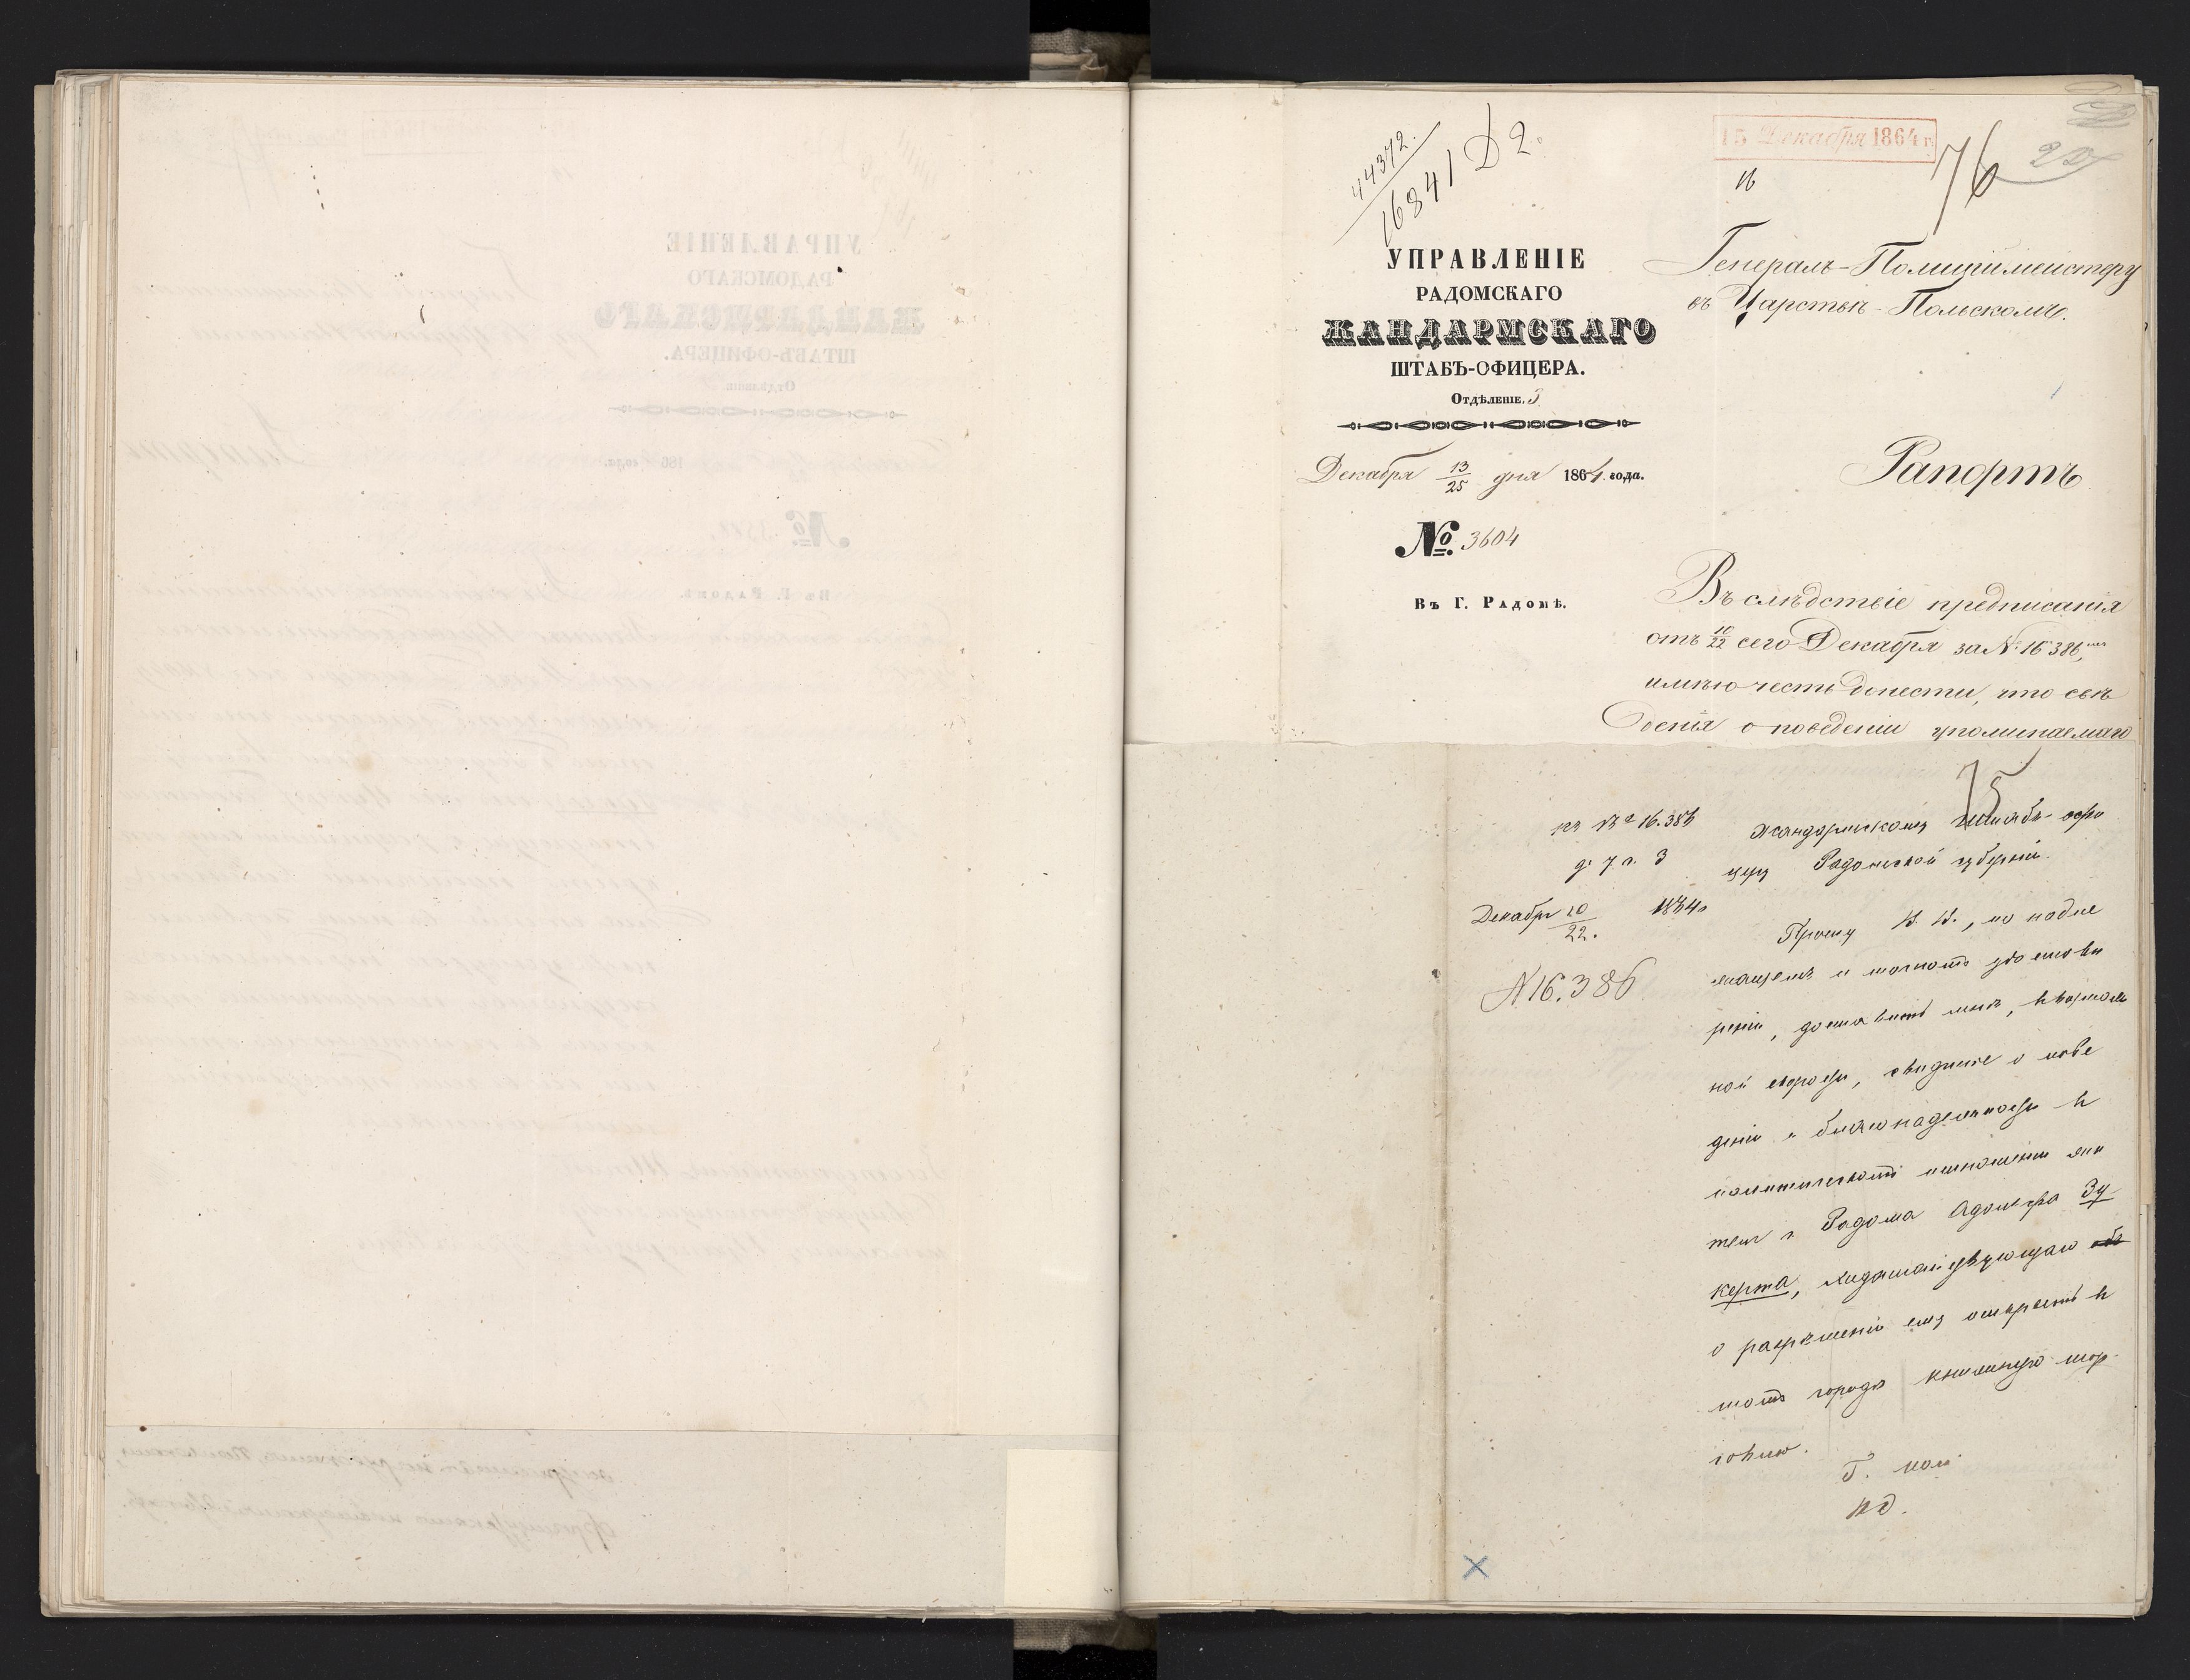 44372.
16841 D 2.
15 Декабря 1864 г.
76
УПРАВЛЕНІЕ
РАДОМСКАГО
ЖАНДАРМСКАГО
ШТАБЪ-ОФИЦЕРА.
Отдѣленіе. 3
Декабря 13/25 дня 1864 года.
№ 3604
Въ Г. Радомѣ.
Генералъ-Полиціймейстеру
въ Царствѣ-Польскомъ.
Рапортъ
Въ слѣдствіе предписанія
отъ 10/22 сего Декабря за № 16386,
имѣю честь донести, что свѣ
денія о поведеніи упоминаемаго
75
къ № 16.383
д. 7 л. 3
Декабря 10/22. 1864 г.
N 16.386
Жандармскому штабъ-офи
церу Радомской губерніи.
Прошу В. В., по надле
жащемъ и точномъ удостовѣ
реніи, доставить мнѣ, въ возможно
ной скорости, свѣдѣніе о пове
деніи и благонадежности въ
политическомъ отношеніи жи
теля г. Радома Адольфа Зу
керта, ходатайствующаго
о разрѣшеніи ему открыть въ
томъ городѣ книжную тор
говлю.
Г. пол.